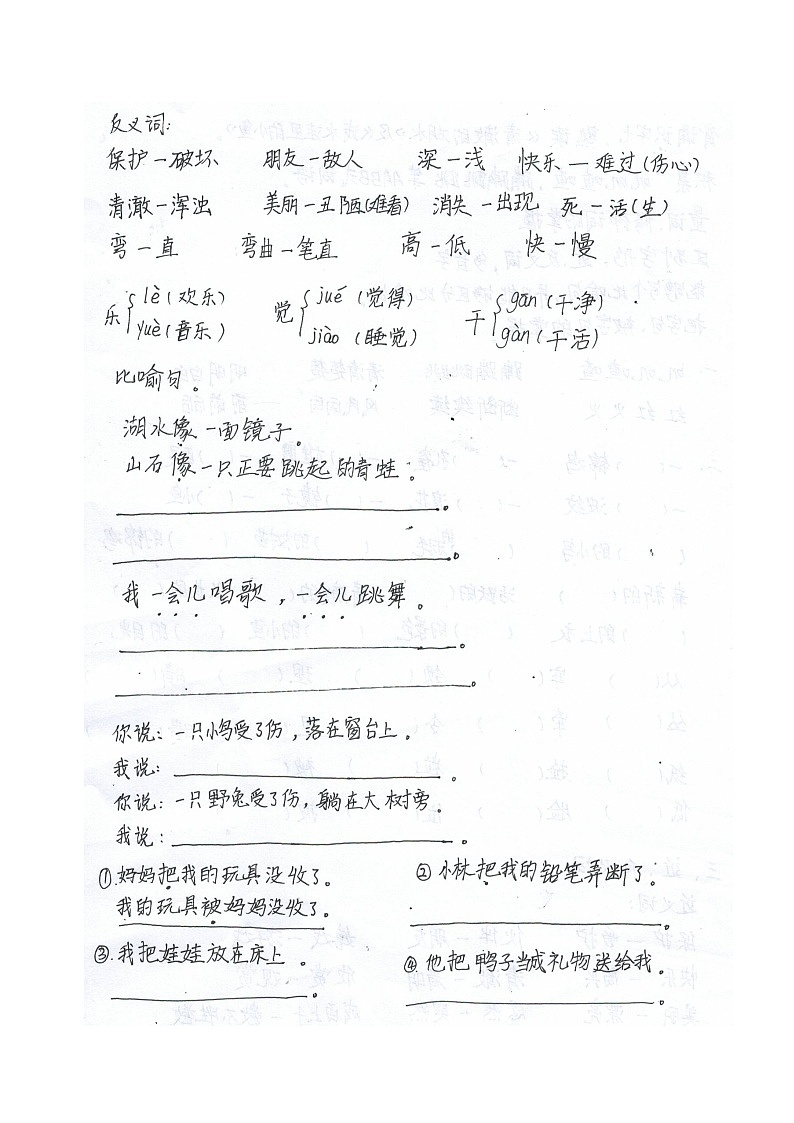 反义词:
保护—破坏 朋友—敌人 深—浅 快乐—难过(伤心)
清澈—浑浊 美丽—丑陋(难看) 消失—出现 死—活(生)
弯—直 弯曲—笔直 高—低 快—慢
乐{lè(欢乐) 觉{jué(觉得) 干{gān(干净)
yuè(音乐) jiào(睡觉) gàn(干活)
比喻句。
湖水像一面镜子。
山石像一只正要跳起的青蛙。
____。
____。
我一会儿唱歌,一会儿跳舞。
____。
____。
你说:一只小鸟受了伤,落在窗台上。
我说:____。
你说:一只野兔受了伤,躺在大树旁。
我说:____。
①.妈妈把我的玩具没收了。 ②小林把我的铅笔弄断了。
我的玩具被妈妈没收了。 ____。
③.我把娃娃放在床上。 ④他把鸭子当成礼物送给我。
____。 ____。